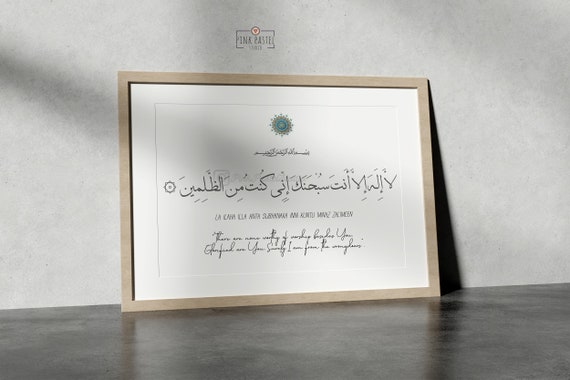 PINK PASTEL
STUDIO
بسم الله الرحمن الرحيم
لَآ إِلَٰهَ إِلَّآ أَنتَ سُبْحَٰنَكَ إِنِّى كُنتُ مِنَ ٱلظَّٰلِمِينَ
LA ILAHA ILLA ANTA SUBHANAKA INNI KUNTU MINAZ ZALIMEEN
"There are none worthy of worship besides You.
Glorified are You. Surely I am from the wrongdoers."